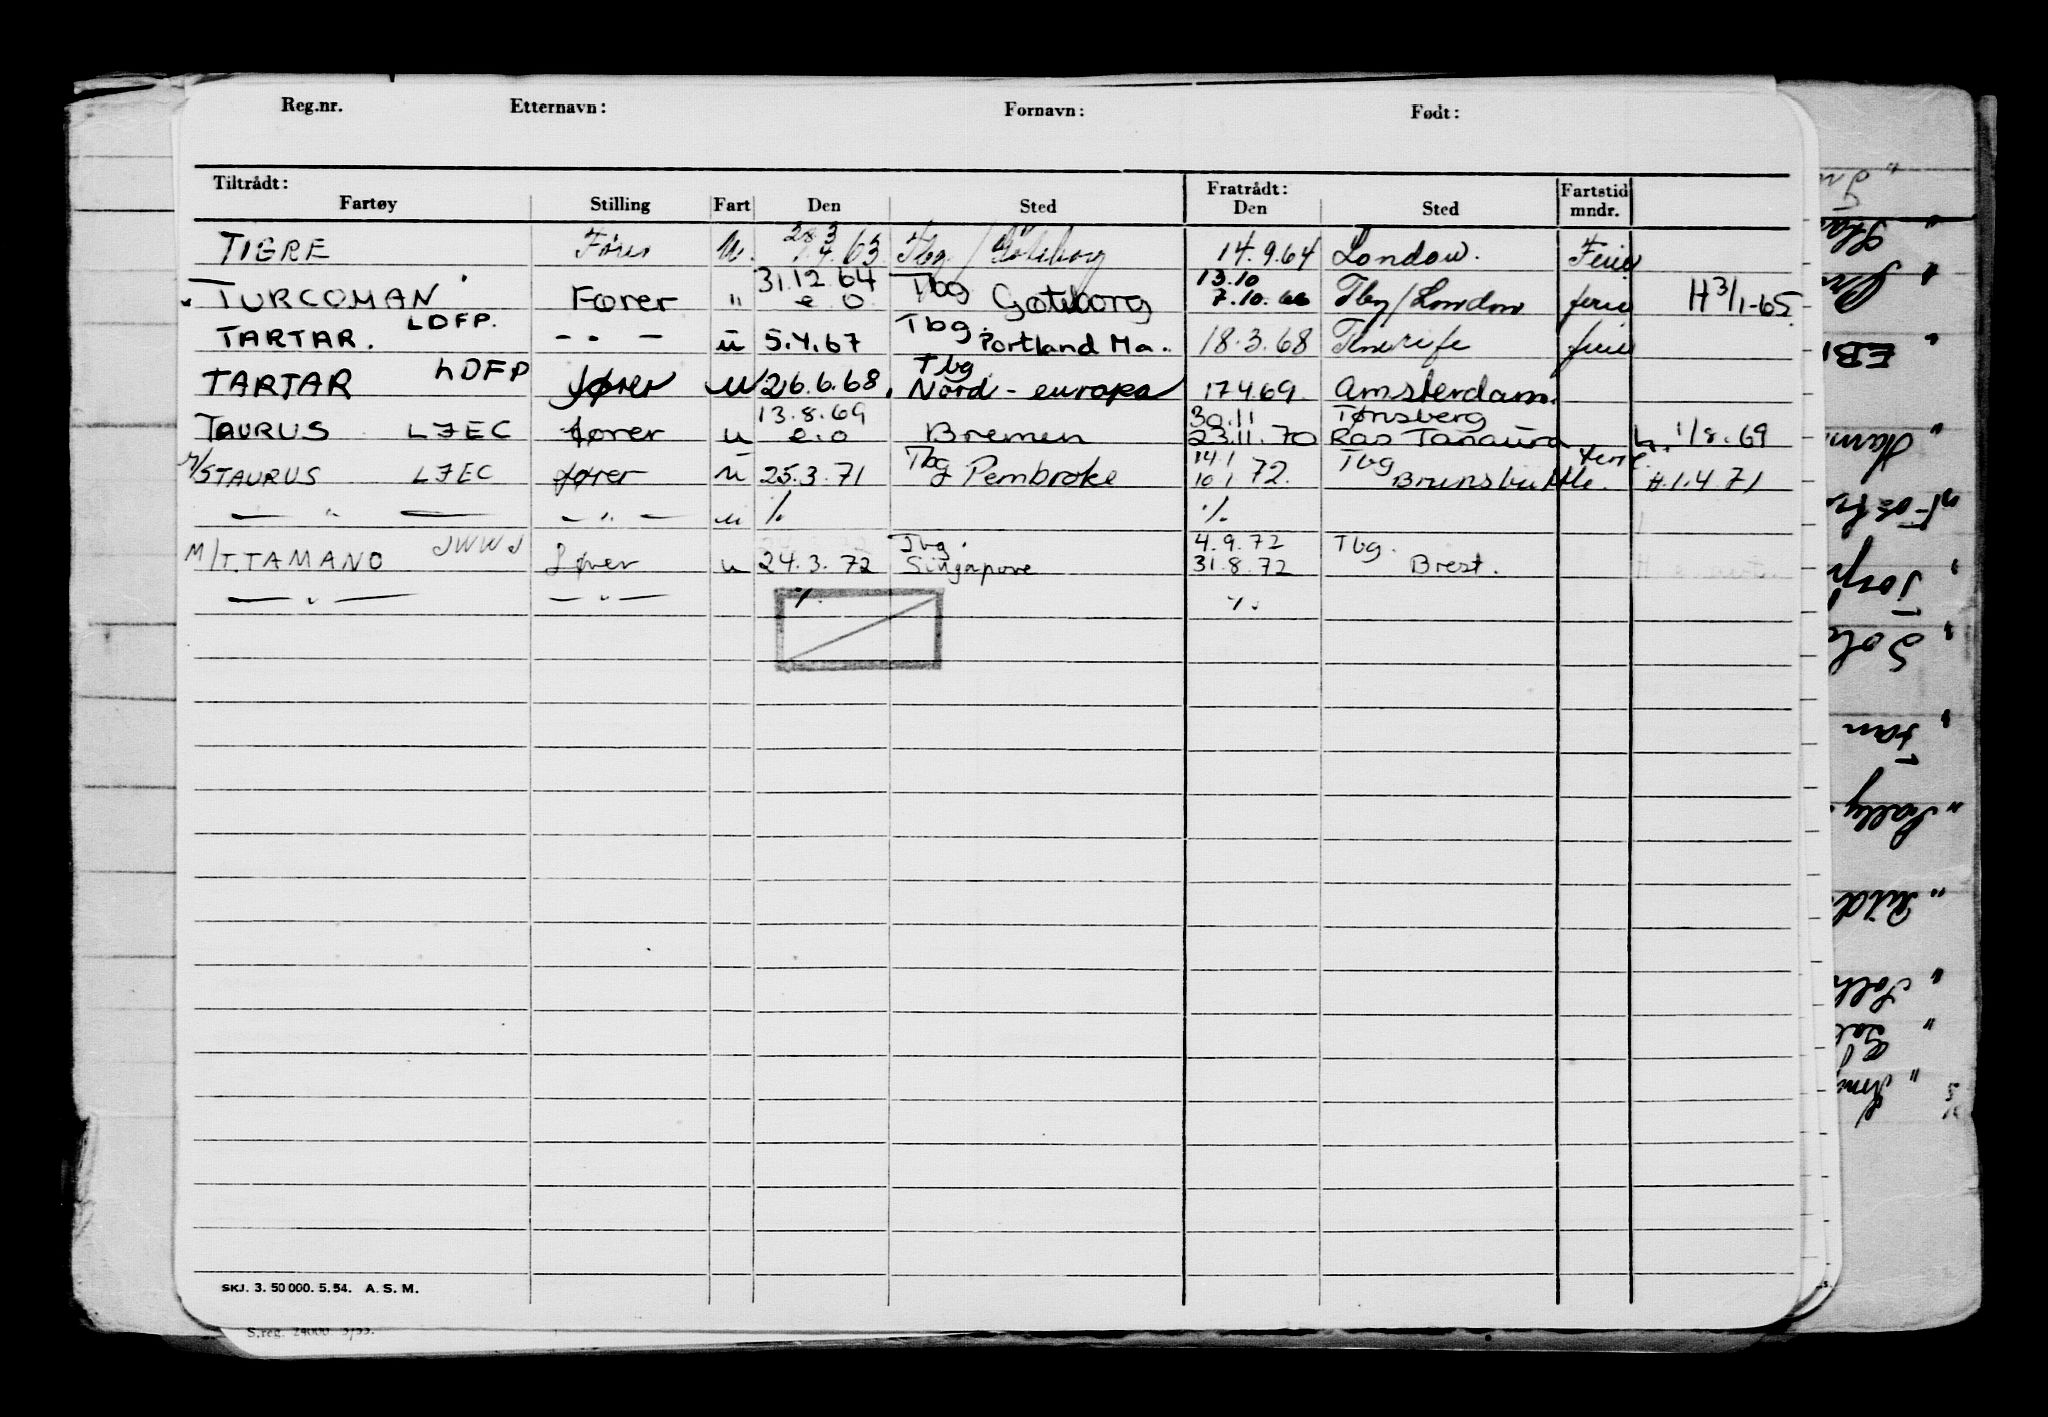 Reg.nr. Etternavn: Fornavn: Født:
Tiltrådt: Fratrådt: Fartstid
Fartøy Stilling Fart Den Sted Den Sted mndr.
28.3
TIGRE Fører u. 1.4.63. Tbg / Göteborg 14.9.64 London. Ferie
31.12.64 Tbg 13.10
TURCOMAN Fører " e.o Gøteborg 7.10.66 Tbg/London ferie H 3/1-65.
TARTAR. LDFP. - " - u 5.4.67 Tbg. Portland Ma. 18.3.68 Tenerife ferie
Tbg.
TARTAR LDFP fører u 26.6.68. Nord-europa 17.4.69. Amsterdam.
13.8.69 30.11 Tønsberg
TAURUS LJEC fører u e.o Bremen 23.11.70 Ras Tanaura ferie. h. 1/8.69
Tbg 14.1 Tbg
M/S TAURUS LJEC fører u 25.3.71 Pembroke 10.1 72. Brunsbuttle. H.1.4 71
— " — — " — u ./. ./.
Tbg. 4.9.72 Tbg.
M/T. TAMANO JWWJ fører u 24.3.72 Singapore 31.8.72 Brest.
— " — — " — ./. ./.
SKJ. 3. 50 000. 5. 54. A. S. M.
S.reg. 24000 3/53.